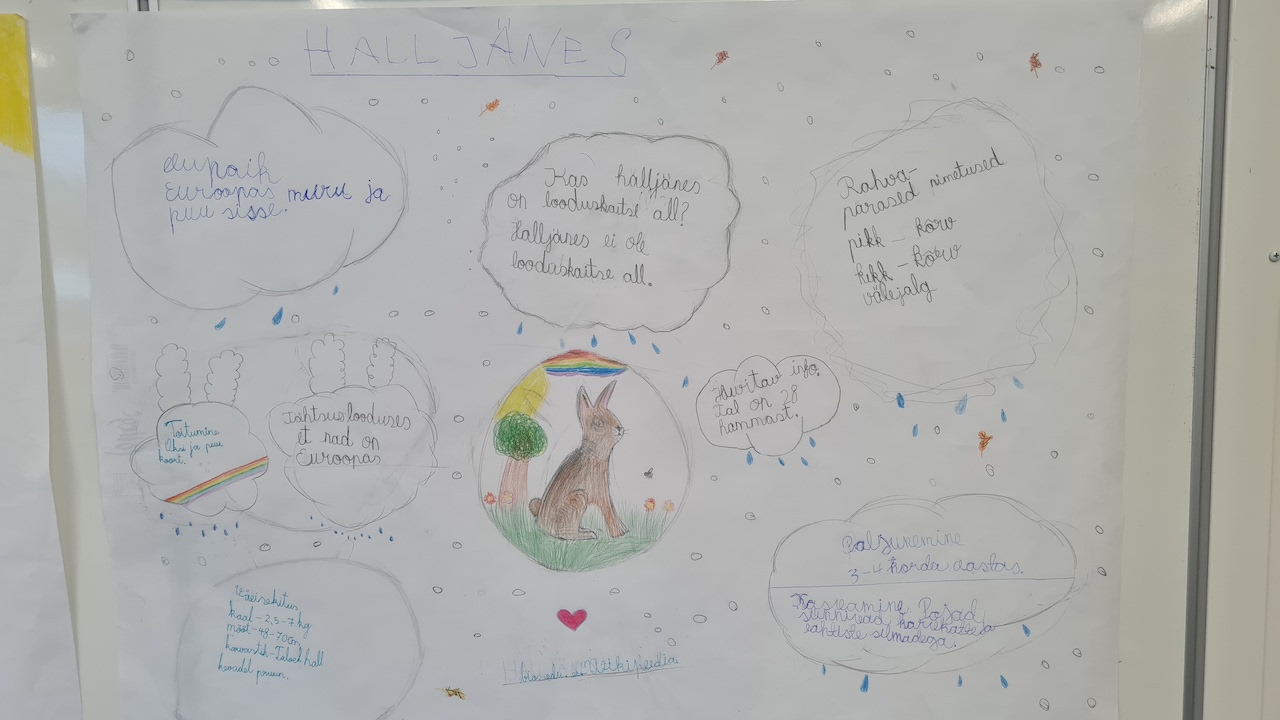 HALLJÄNES
elupaik
Euroopas muru ja
puu sisse.
Kas halljänes
on looduskaitse all?
Halljänes ei ole
looduskaitse all.
Rahva-
pärased nimetused
pikk - kõrv
kikk - kõrv
välejalg
Toitumine
oksi ja puu
koort.
Tähtsus looduses
et nad on
Euroopas
Huvitav info.
Tal on 28
hammast.
Paljunemine
3-4 korda aastas.
Kasvamine Pojad
sünnivad karvkattega
lahtiste silmadega.
Väeisekitus
kaal - 2,5-7 kg
mõõt - 48-70cm
karvastik - Talvel hall
kevadel pruun.
Wikipeedia